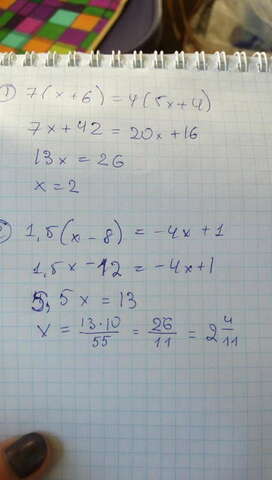 ① 7(x+6) = 4(5x+4)
7x+42 = 20x+16
13x = 26
x = 2
1,5(x-8) = -4x+1
1,5x-12 = -4x+1
5,5x = 13
x = 13·10/55 = 26/11 = 2 4/11